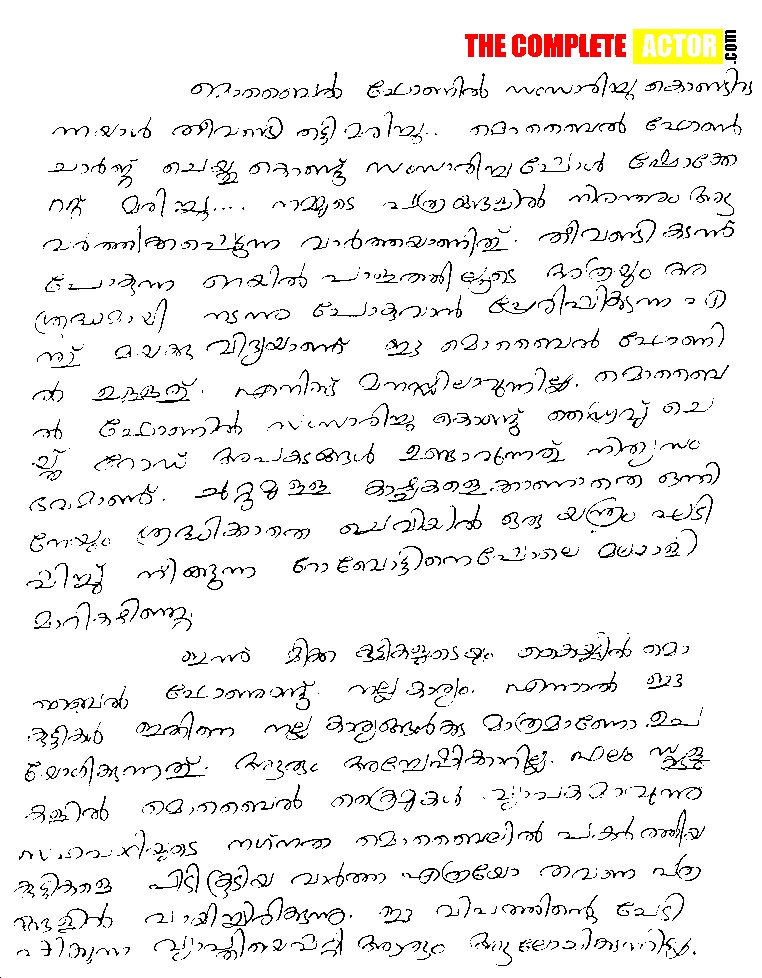 THE COMPLETE ACTOR.com
മൊബൈൽ ഫോണിൽ സംസാരിച്ചു കൊണ്ടിരു
ന്നയാൾ തീവണ്ടി തട്ടി മരിച്ചു.. മൊബൈൽ ഫോൺ
ചാർജ്ജ് ചെയ്തു കൊണ്ട് സംസാരിച്ചപ്പോൾ ഷോക്കേ
റ്റ് മരിച്ചു.... നമ്മുടെ പത്രങ്ങളിൽ നിരന്തരം ആ
വർത്തിക്കപ്പെടുന്ന വാർത്തയാണിത്. തീവണ്ടി കടന്ന്
പോകുന്ന റെയിൽ പാളത്തിലൂടെ മാത്രമും അ
ശ്രദ്ധമായി നടന്നു പോകുവാൻ പ്രേരിപ്പിക്കുന്ന എ
ന്ത് മായക്കു വിദ്യയാണ് ഈ മൊബൈൽ ഫോണി
ൽ ഉള്ളത്. എനിക്ക് മനസ്സിലാവുന്നില്ല. മൊബൈ
ൽ ഫോണിൽ സംസാരിച്ചു കൊണ്ട് ഡ്രൈവ് ചെ
യ്ത് റോഡ് അപകടങ്ങൾ ഉണ്ടാവുന്നത് നിത്യസം
ഭവമാണ്. ചുറ്റുമുള്ള കാഴ്ചകളെ കാണാതെ ഒന്നി
നേയും ശ്രദ്ധിക്കാതെ ചെവിയിൽ ഒരു യന്ത്രം ഘടി
പ്പിച്ച് നീങ്ങുന്ന റോബോട്ടിനെപ്പോലെ മലയാളി
മാറികഴിഞ്ഞു.
ഇന്ന് മിക്ക കുട്ടികളുടെയും കൈയ്യിൽ മൊ
ബൈൽ ഫോണുണ്ട്. നല്ല കാര്യം. എന്നാൽ ഈ
കുട്ടികൾ ഇതിനെ നല്ല കാര്യങ്ങൾക്കു മാത്രമാണോ ഉപ
യോഗിക്കുന്നത്. ആരും അന്വേഷിക്കാറില്ല. പല സ്കൂളു
കളിൽ മൊബൈൽ ക്രൈമുകൾ വ്യാപകമാവുന്നു
സഹപാഠിയുടെ നഗ്നത മൊബൈലിൽ പകർത്തിയ
കുട്ടികളെ പിടികൂടിയ വാർത്ത എത്രയോ തവണ പത്ര
ങ്ങളിൽ വായിച്ചിരിക്കുന്നു. ഈ വിപത്തിന്റെ പേടി
പ്പിക്കുന്ന വ്യാപ്തിയെപ്പറ്റി ആരും ആലോചിക്കുന്നില്ല.